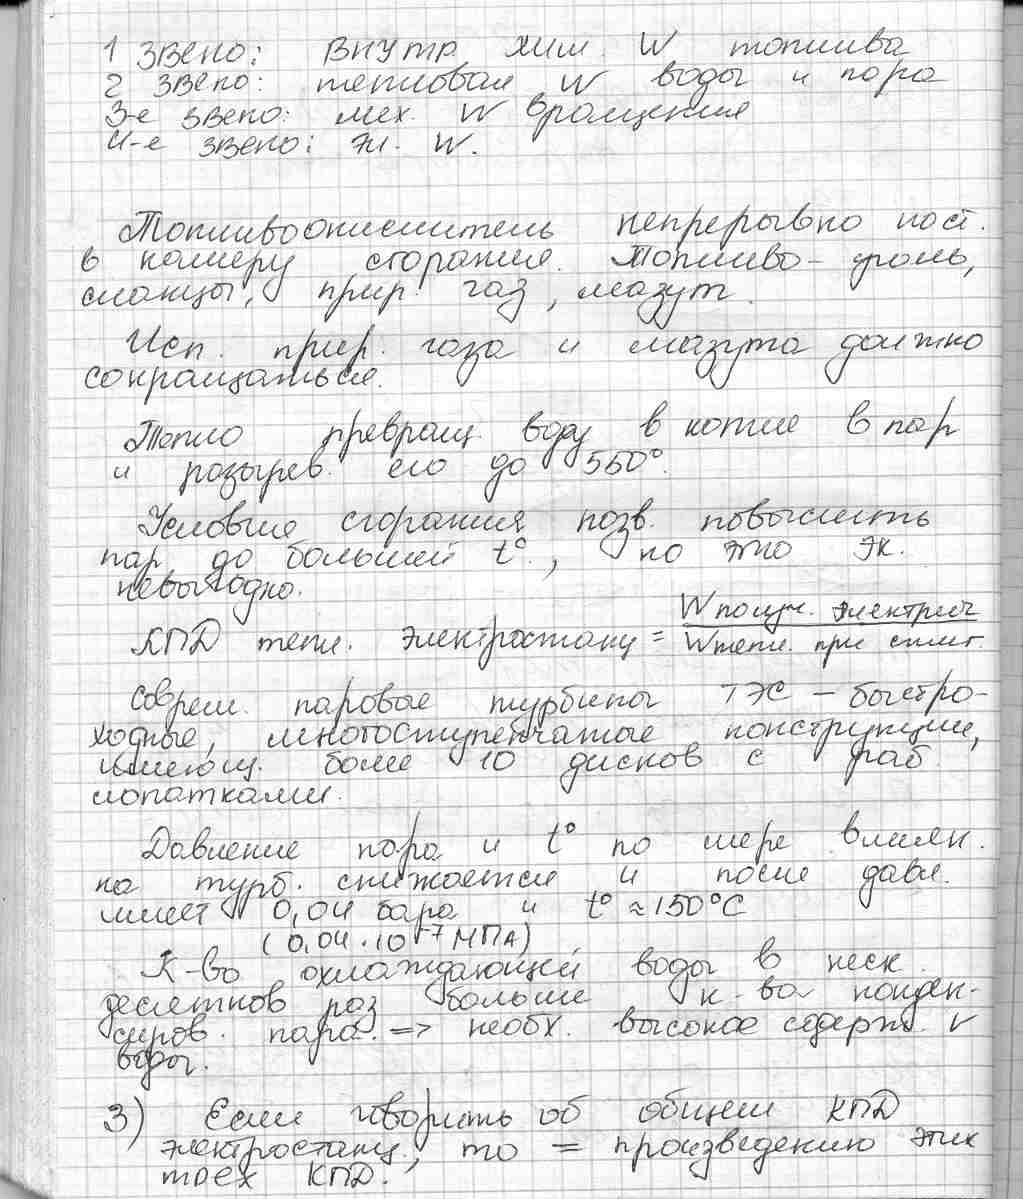 1 звено: внутр хим. W топлива
2 звено: тепловая W воды и пара
3-е звено: мех. W вращения
4-е звено: эл. W.
Топливоокислитель непрерывно пост.
в камеру сгорания. Топливо - уголь,
сланцы, прир. газ, мазут.
Исп. прир. газа и мазута должно
сокращаться.
Тепло превращ. воду в котле в пар
и разогрев. его до 550°.
Условия сгорания позв. повысить
пар до большей t°, но это эк.
невыгодно.
КПД тепл. электростанц = W получ. электрич
W тепл. при сжиг.
Соврем. паровые турбины ТЭС - быстро-
ходные, многоступенчатые конструкции,
имеющ. более 10 дисков с раб.
лопатками.
Давление пара и t° по мере влиян.
на турб. снижается и после давл.
имеет 0,04 бара и t° ≈ 150°C
(0,04·10⁻⁷ МПА)
К-во охлаждающей воды в неск.
десятков раз больше к-ва конден-
сиров. пара. => необх. высокое содерж. V
воды.
3) Если говорить об общем КПД
электростанц., то = произведению этих
трёх КПД.